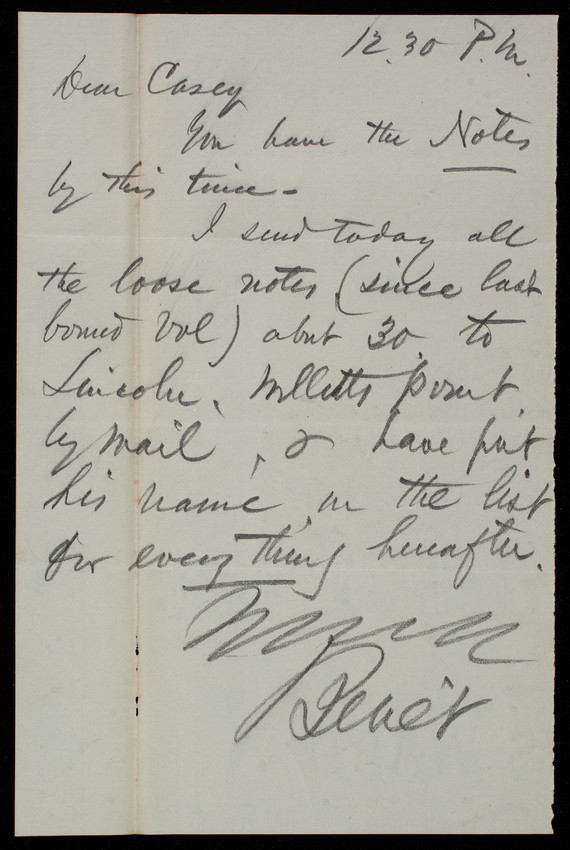 12.30 P.M.
Dear Casey
You have the Notes
by this time -
I send today all
the loose notes (since last
bound vol) abut 30. to
Lincoln, Willetts Point
by mail, & have put
his name on the list
for everything hereafter.
Benét